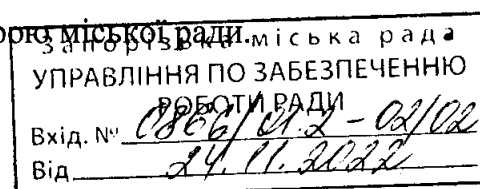 рою міської ради.
Запорізька міська рада
УПРАВЛІННЯ ПО ЗАБЕЗПЕЧЕННЮ
РОБОТИ РАДИ
Вхід. № 0866/01.2-02/02
Від 24.11.2022